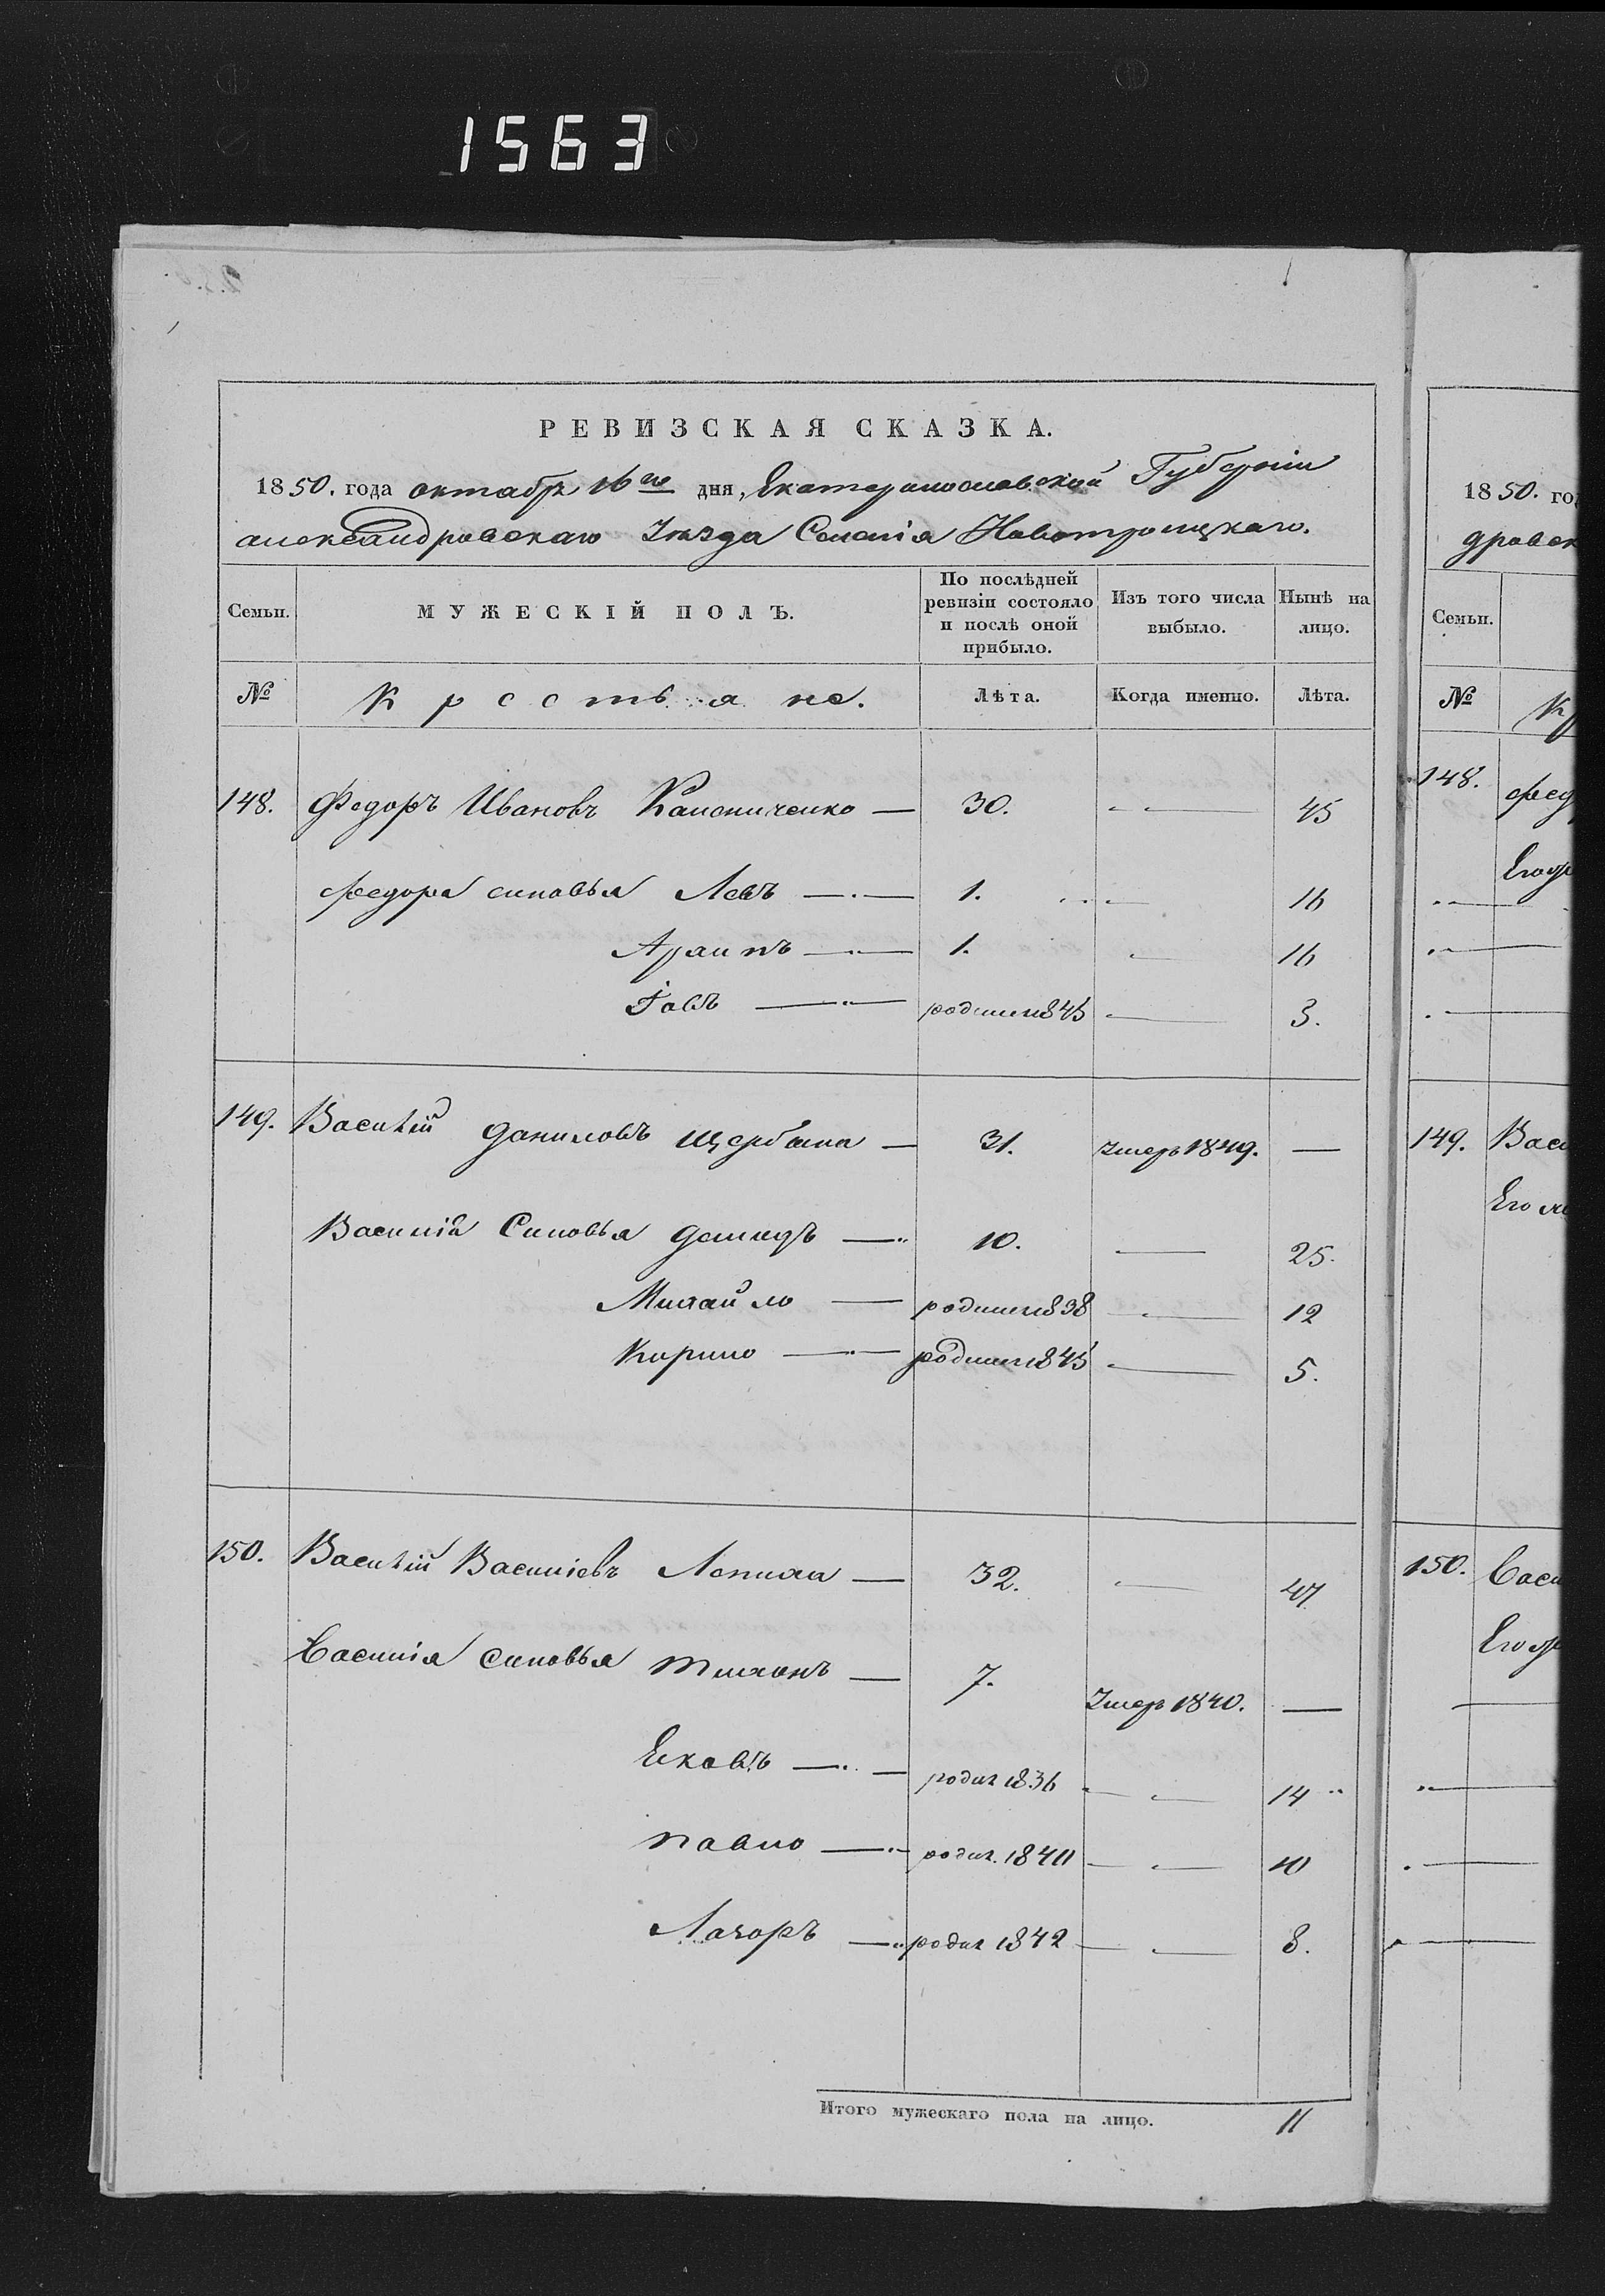 1563
РЕВИЗСКАЯ СКАЗКА.
1850. года октабря 16го дня, Екатеринославской Губернии
александровскаго Уѣзда Селенія Новотроицкаго.
Семьи. МУЖЕСКІЙ ПОЛЪ. По послѣдней ревизіи состояло и послѣ оной прибыло. Изъ того числа выбыло. Нынѣ на лицо.
№ Крестьяне. Лѣта. Когда именно. Лѣта.
148. Федоръ Ивановъ — 30. — 45
федора синовья Левъ — 1. — 16
1. — 16
Іовъ — 3.
149. Василій даниловъ щербина — 31. Умеръ 1849. —
Василія Синовья демидъ — 10. — 25.
Михайло — родился 1838 — 12
Кирило — родился 1845 — 5.
150. Василій Василіевъ Лепиха — 32. — 47
Василія синовья тихонъ — 7. Умеръ 1840. —
Ековъ — родил 1836 — 14
павло — родил. 1840 — 10
Лазоръ — родил 1842 — 8.
Итого мужескаго пола на лицо. 11
1850. го
дровск
Семьи.
№ Кр
148. фед
Его
149. Васи
Его
150. Васи
Его